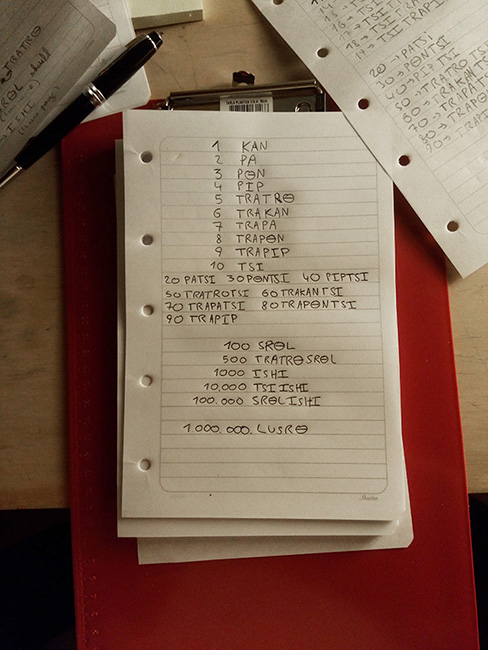 TRATRO
SROL
ISHI
1 KAN
2 PA
3 PON
4 PIP
5 TRATRO
6 TRAKAN
7 TRAPA
8 TRAPON
9 TRAPIP
10 TSI
20 PATSI 30 PONTSI 40 PIPTSI
50 TRATROTSI 60 TRAKANTSI
70 TRAPATSI 80 TRAPONTSI
90 TRAPIP
100 SROL
500 TRATROSROL
1000 ISHI
10,000 TSIISHI
100.000 SROLISHI
1.000.000. LUSRO
20 → PATSI
30 → PONTSI
40 → PIPTSI
50 → TRATRO TSI
60 → TRAKAN TSI
70 → TRAPATSI
80 → TRAPONTSI